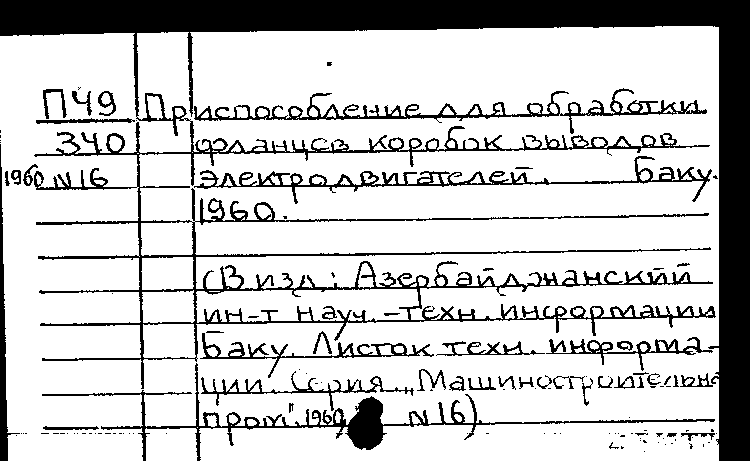 П49 Приспособление для обработки
340 фланцев коробок выводов
1960 N16 электродвигателей. Баку.
1960.
(В изд.: Азербайджанский
ин-т науч.-техн. информации
Баку. Листок техн. информа-
ции. Серия „Машиностроительн
пром". 1960, N16).